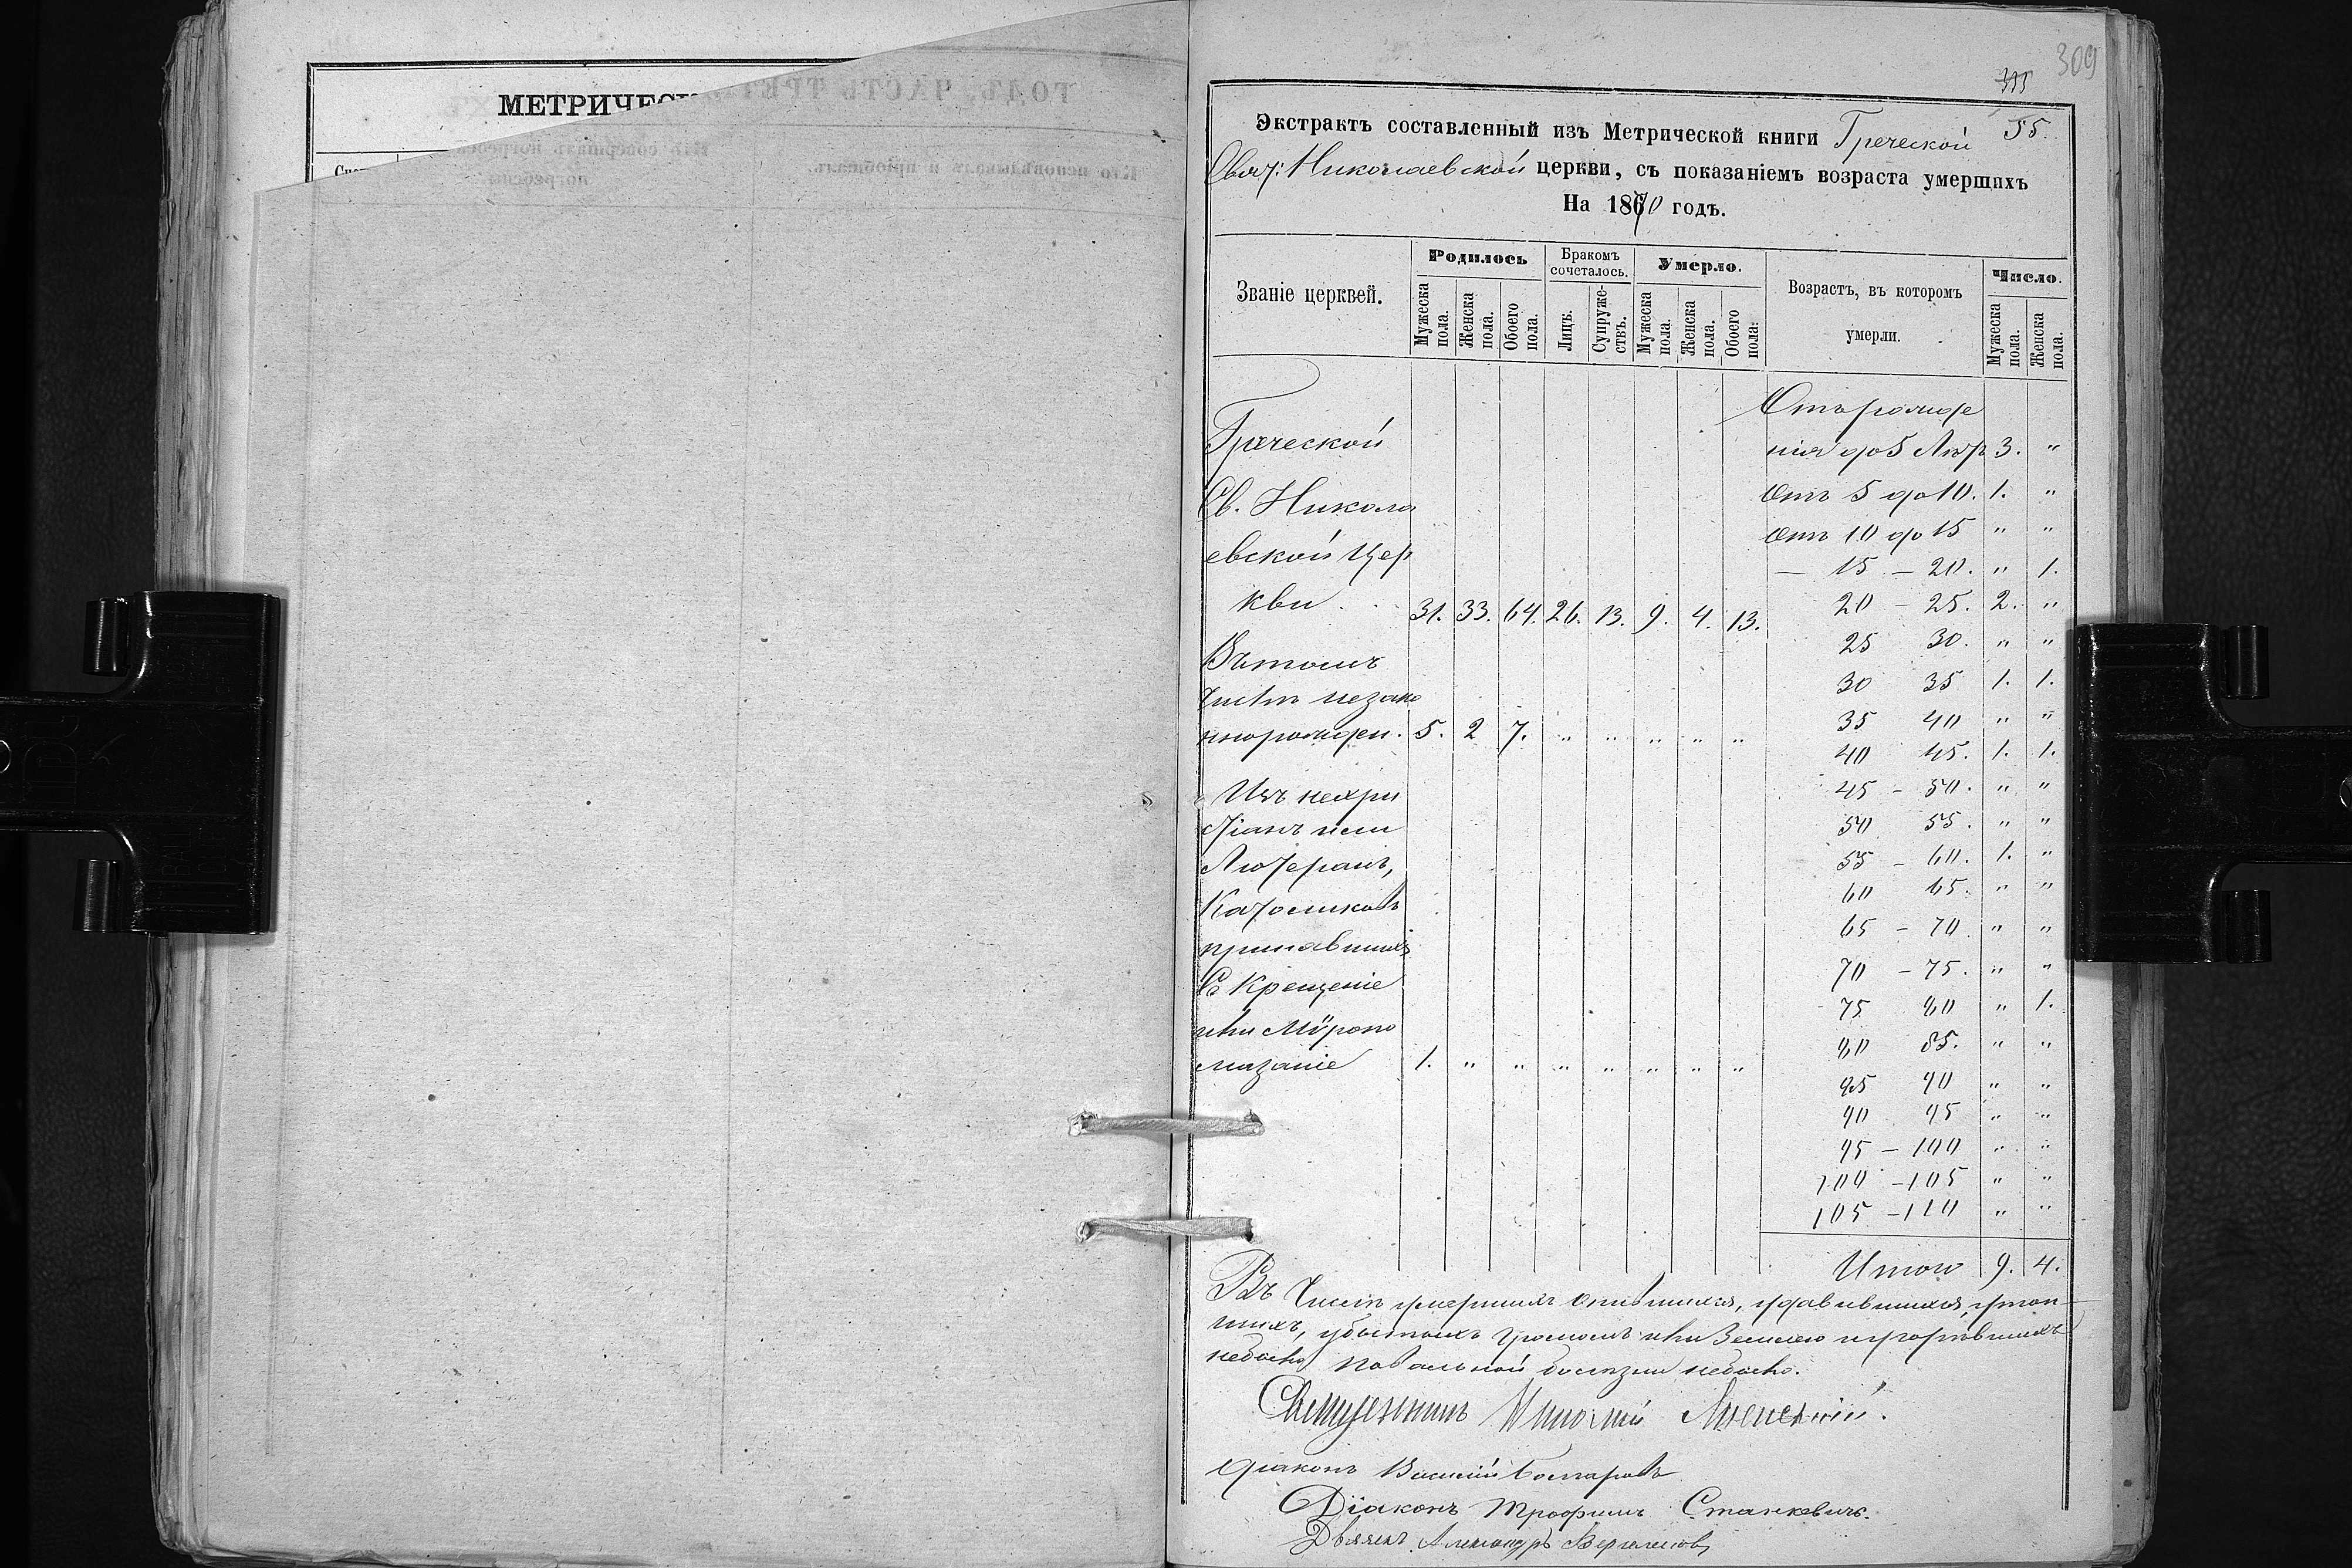 МЕТРИЧЕСК
309
Экстрактъ составленный изъ Метрической книги Греческой 55.
Свят: Николаевской церкви, съ показаніемъ возраста умершихъ
На 1870 годъ.
Званіе церквей.
Родилось
Бракомъ сочеталось.
Умерло.
Возрастъ, въ которомъ умерли.
Число.
Мужеска пола.
Женска пола.
Обоего пола.
Лицъ.
Супружествъ.
Мужеска пола.
Женска пола.
Обоего пола.
Мужеска пола.
Женска пола.
Греческой
Св. Никола
евской Цер
кви . . 31. 33. 64. 26. 13. 9. 4. 13.
Въ томъ
числѣ незако
ннорожден. 5. 2 7. " " " " "
Изъ нехри
стіанъ или
Лютеранъ,
Католиковъ
принявшихъ
Св Крещеніе
или Мѵропо
мазаніе 1. " " " " " " "
Отъ рожде
нія до 5 Лѣтъ 3. "
Отъ 5 до 10. 1. "
Отъ 10 до 15 " "
— 15 – 20. " 1.
20 – 25. 2. "
25 30. " "
30 35 1. 1.
35 40 " "
40 45. 1. 1.
45 – 50. " "
50 55. " "
55 – 60. 1. "
60 65. " "
65 – 70 " "
70 – 75. " "
75 80 " 1.
80 85. " "
85 90 " "
90 95 " "
95 – 100 " "
100 – 105 " "
105 – 110 " "
Итого 9. 4.
Въ Числѣ умершихъ опившихся, удавившихся, утоп-
шихъ, убитыхъ громомъ или Землею и угорѣвшихъ
небыло, повальной болезни небыло.
Священникъ Николай
Діаконъ Василій Бочаровъ
Діаконъ Трофимъ Станкевичъ.
Дьячекъ Александръ